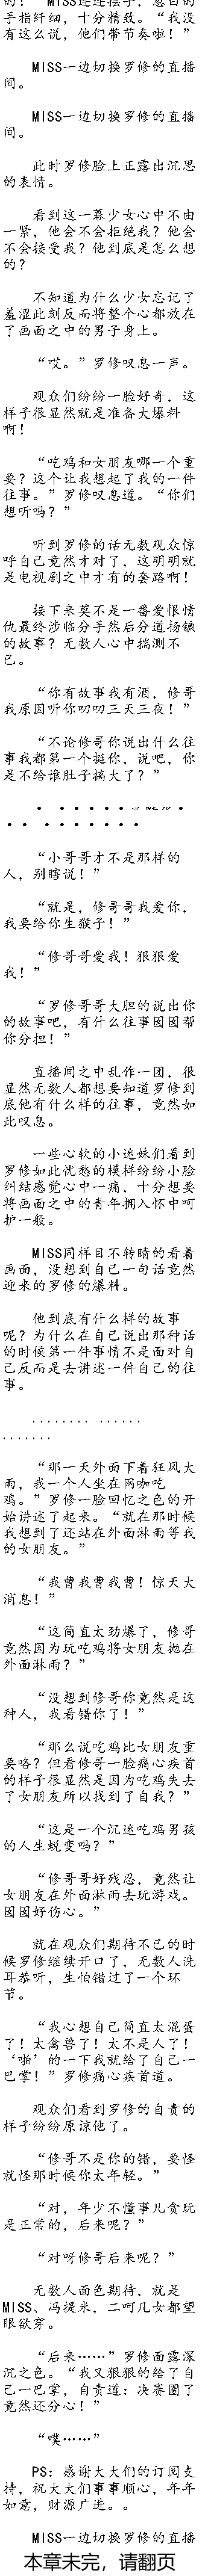 的！”MISS连连摆手，葱白的
手指纤细，十分精致。“我没
有这么说，他们带节奏啦！”
MISS一边切换罗修的直播
间。
MISS一边切换罗修的直播
间。
此时罗修脸上正露出沉思
的表情。
看到这一幕少女心中不由
一紧，他会不会拒绝我？他会
不会接受我？他到底是怎么想
的？
不知道为什么少女忘记了
羞涩此刻反而将整个心都放在
了画面之中的男子身上。
“哎。”罗修叹息一声。
观众们纷纷一脸好奇，这
样子很显然就是准备大爆料
啊！
“吃鸡和女朋友哪一个重
要？这个让我想起了我的一件
往事。”罗修叹息道。“你们
想听吗？”
听到罗修的话无数观众惊
呼自己竟然才对了，这明明就
是电视剧之中才有的套路啊！
接下来莫不是一番爱恨情
仇最终涉临分手然后分道扬镳
的故事？无数人心中揣测不
已。
“你有故事我有酒，修哥
我原因听你叨叨三天三夜！”
“不论修哥你说出什么往
事我都第一个挺你，说吧，你
是不给谁肚子搞大了？”
“小哥哥才不是那样的
人，别瞎说！”
“就是，修哥哥我爱你，
我要给你生猴子！”
“修哥哥爱我！狠狠爱
我！”
“罗修哥哥大胆的说出你
的故事吧，有什么往事囡囡帮
你分担！”
直播间之中乱作一团，很
显然无数人都想要知道罗修到
底他有什么样的往事，竟然如
此叹息。
一些心软的小迷妹们看到
罗修如此忧愁的模样纷纷小脸
纠结感觉心中一痛，十分想要
将画面之中的青年拥入怀中呵
护一般。
MISS同样目不转睛的看着
画面，没想到自己一句话竟然
迎来的罗修的爆料。
他到底有什么样的故事
呢？为什么在自己说出那种话
的时候第一件事情不是面对自
己反而是去讲述一件自己的往
事。
........ ......
.......
“那一天外面下着狂风大
雨，我一个人坐在网咖吃
鸡。”罗修一脸回忆之色的开
始讲述了起来。“就在那时候
我想到了还站在外面淋雨等我
的女朋友。”
“我曹我曹我曹！惊天大
消息！”
“这简直太劲爆了，修哥
竟然因为玩吃鸡将女朋友抛在
外面淋雨？”
“没想到修哥你竟然是这
种人，我看错你了！”
“那么说吃鸡比女朋友重
要咯？但看修哥一脸痛心疾首
的样子很显然是因为吃鸡失去
了女朋友所以找到了自我？”
“这是一个沉迷吃鸡男孩
的人生蜕变吗？”
“修哥哥好残忍，竟然让
女朋友在外面淋雨去玩游戏。
囡囡好伤心。”
就在观众们期待不已的时
候罗修继续开口了，无数人洗
耳恭听，生怕错过了一个环
节。
“我心想自己简直太混蛋
了！太禽兽了！太不是人了！
‘啪’的一下我就给了自己一
巴掌！”罗修痛心疾首道。
观众们看到罗修的自责的
样子纷纷原谅他了。
“修哥不是你的错，要怪
就怪那时候你太年轻。”
“对，年少不懂事儿贪玩
是正常的，后来呢？”
“对呀修哥后来呢？”
无数人面色期待，就是
MISS、冯提米，二呵几女都望
眼欲穿。
“后来……”罗修面露深
沉之色。“我又狠狠的给了自
己一巴掌，自责道：决赛圈了
竟然还分心！”
“噗……”
PS：感谢大大们的订阅支
持，祝大大们事事顺心，年年
如意，财源广进。。
MISS一边切换罗修的直播
本章未完，请翻页